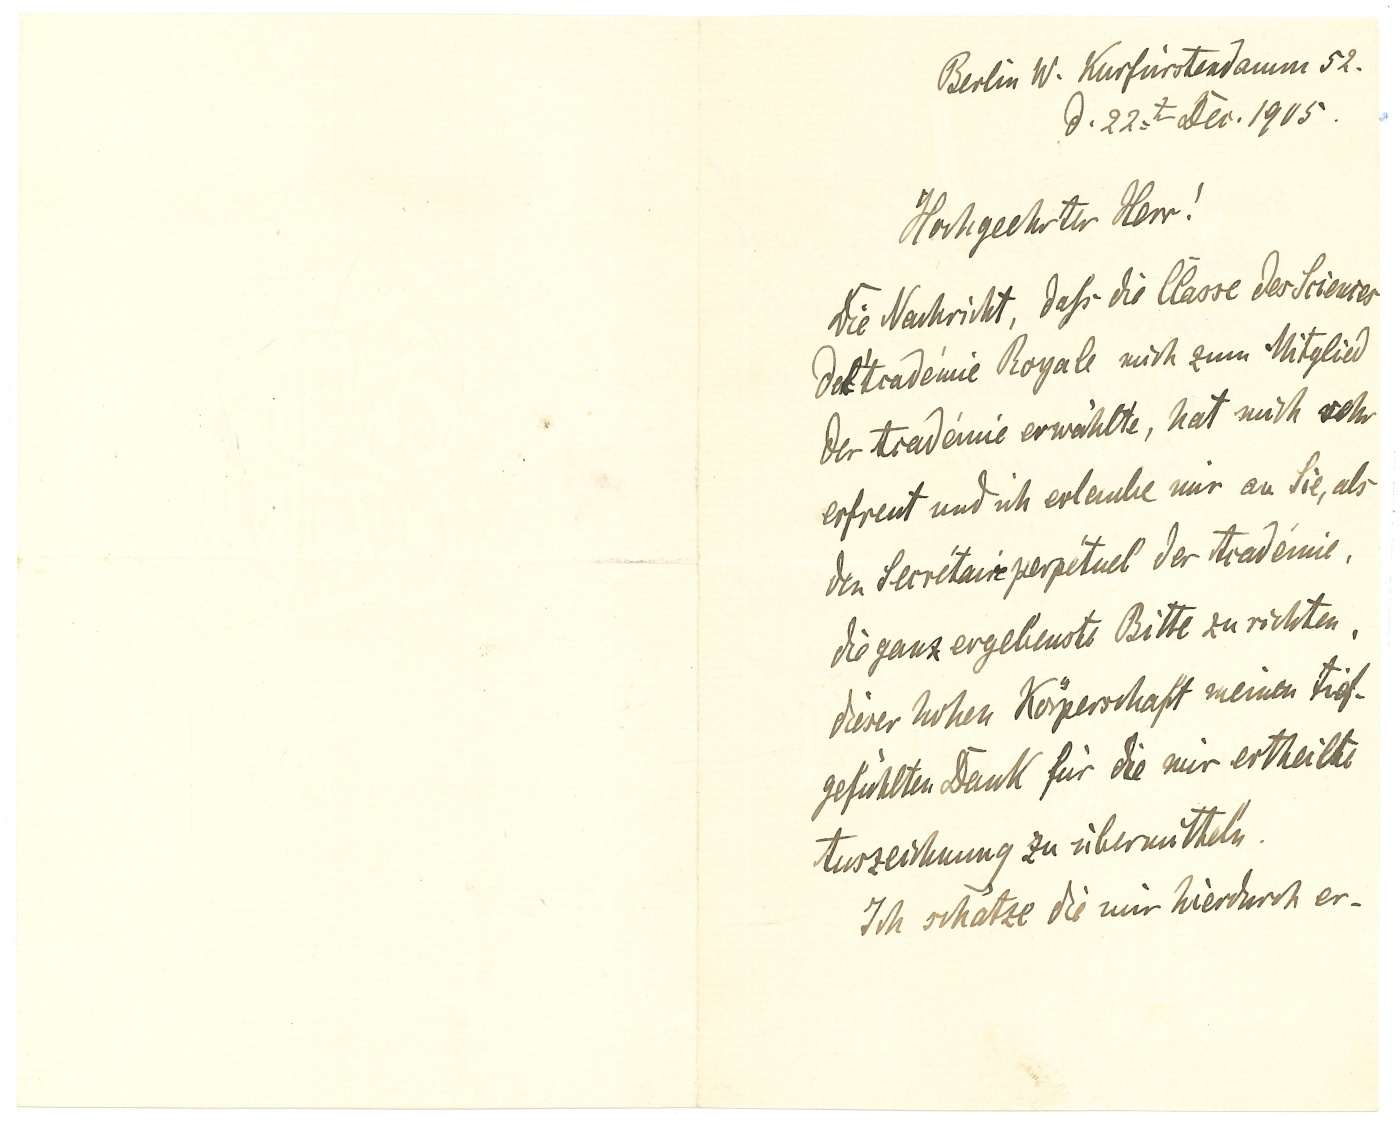 Berlin W. Kurfürstendamm 52.
d. 22t Dec. 1905.
Hochgeehrter Herr!
Die Nachricht, daſs die Classe des Sciences
de l'Académie Royale mich zum Mitglied
der Académie erwählte, hat mich sehr
erfreut und ich erlaube mir an Sie, als
den Secrétaire perpétuel der Académie,
die ganz ergebenste Bitte zu richten,
dieser hohen Körperschaft meinen tief-
gefühlten Dank für die mir ertheilte
Auszeichnung zu übermitteln.
Ich schätze die mir hierdurch er-